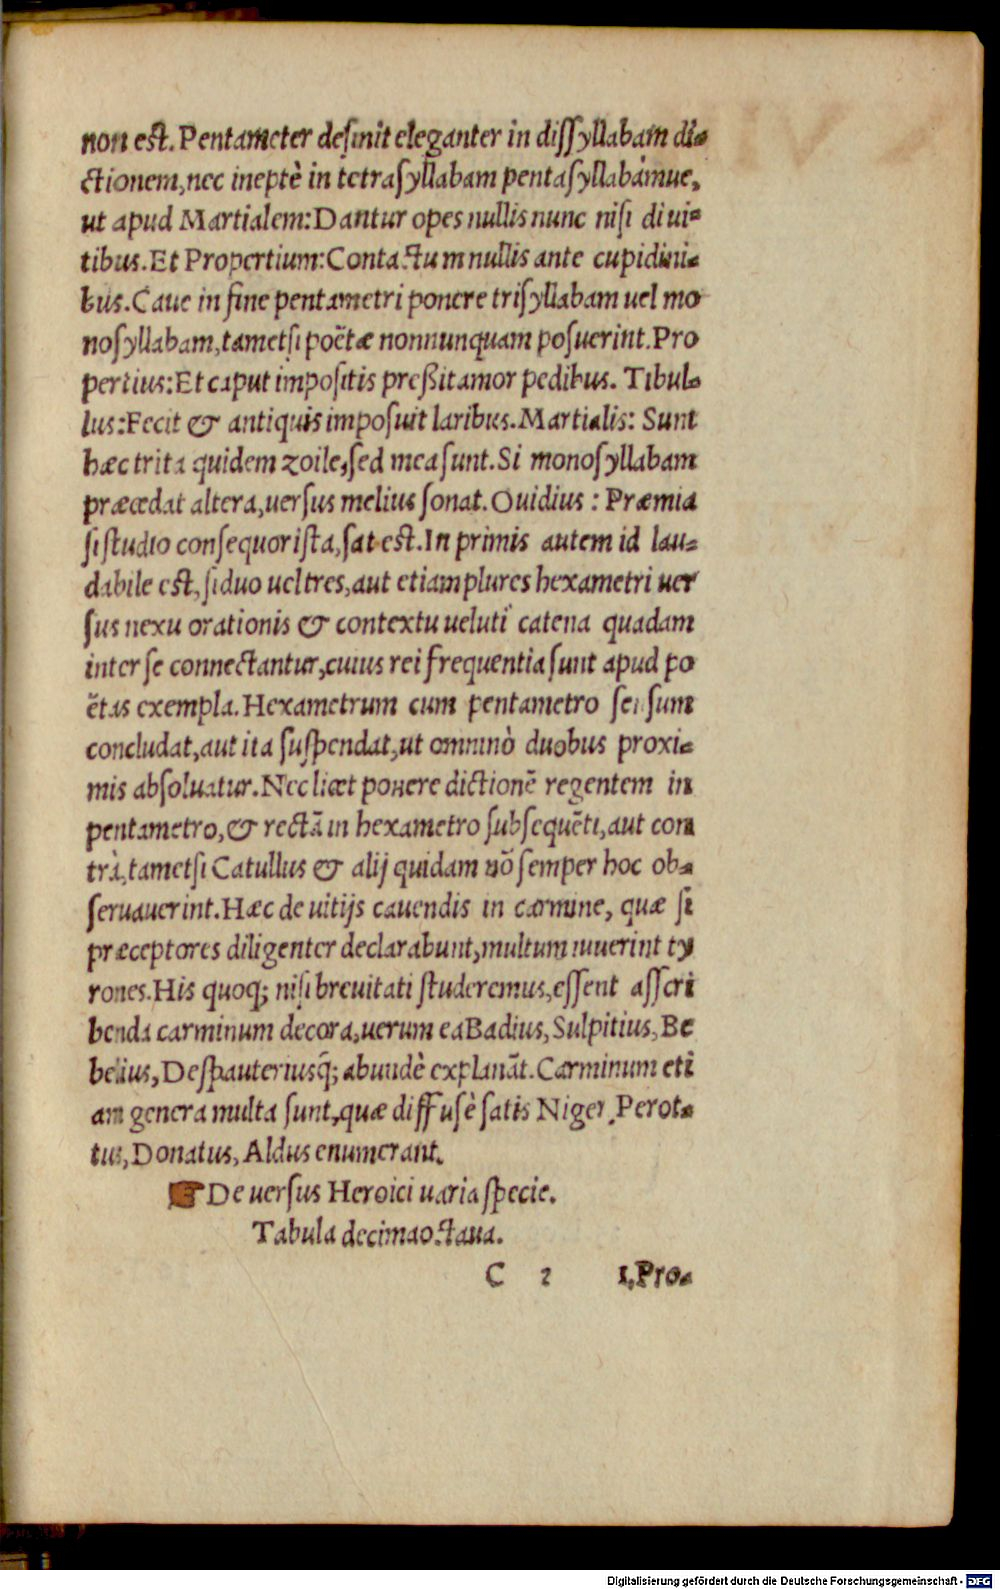 non est. Pentameter desinit eleganter in dissyllabam di-
ctionem, nec ineptè in tetrasyllabam pentasyllabámue,
ut apud Martialem: Dantur opes nullis nunc nisi diui-
tibus. Et Propertium: Contactum nullis ante cupidini-
bus. Caue in fine pentametri ponere trisyllabam uel mo
nosyllabam, tametsi poëtæ nonnunquam posuerint. Pro
pertius: Et caput impositis preßit amor pedibus. Tibul-
lus: Fecit & antiquis imposuit laribus. Martialis: Sunt
hæc trita quidem zoile, sed mea sunt. Si monosyllabam
præcedat altera, uersus melius sonat. Ouidius: Præmia
si studio consequor ista, sat est. In primis autem id lau-
dabile est, si duo uel tres, aut etiam plures hexametri uer
sus nexu orationis & contextu ueluti catena quadam
inter se connectantur, cuius rei frequentia sunt apud po
ëtas exempla. Hexametrum cum pentametro sensum
concludat, aut ita suspendat, ut omninò duobus proxi-
mis absoluatur. Nec licet ponere dictionē regentem in
pentametro, & rectā in hexametro subsequēti, aut con
trà, tametsi Catullus & alij quidam nō semper hoc ob-
seruauerint. Hæc de uitijs cauendis in carmine, quæ si
præceptores diligenter declarabunt, multum iuuerint ty
rones. His quoq; nisi breuitati studeremus, essent asscri
benda carminum decora, uerum ea Badius, Sulpitius, Be
belius, Despauteriusq̃; abundè explanāt. Carminum eti
am genera multa sunt, quæ diffusè satis Niger, Perot-
tus, Donatus, Aldus enumerant.
☞ De uersus Heroici uaria specie.
Tabula decimaoctaua.
C 2 1. Pro-
Digitalisierung gefördert durch die Deutsche Forschungsgemeinschaft - DFG